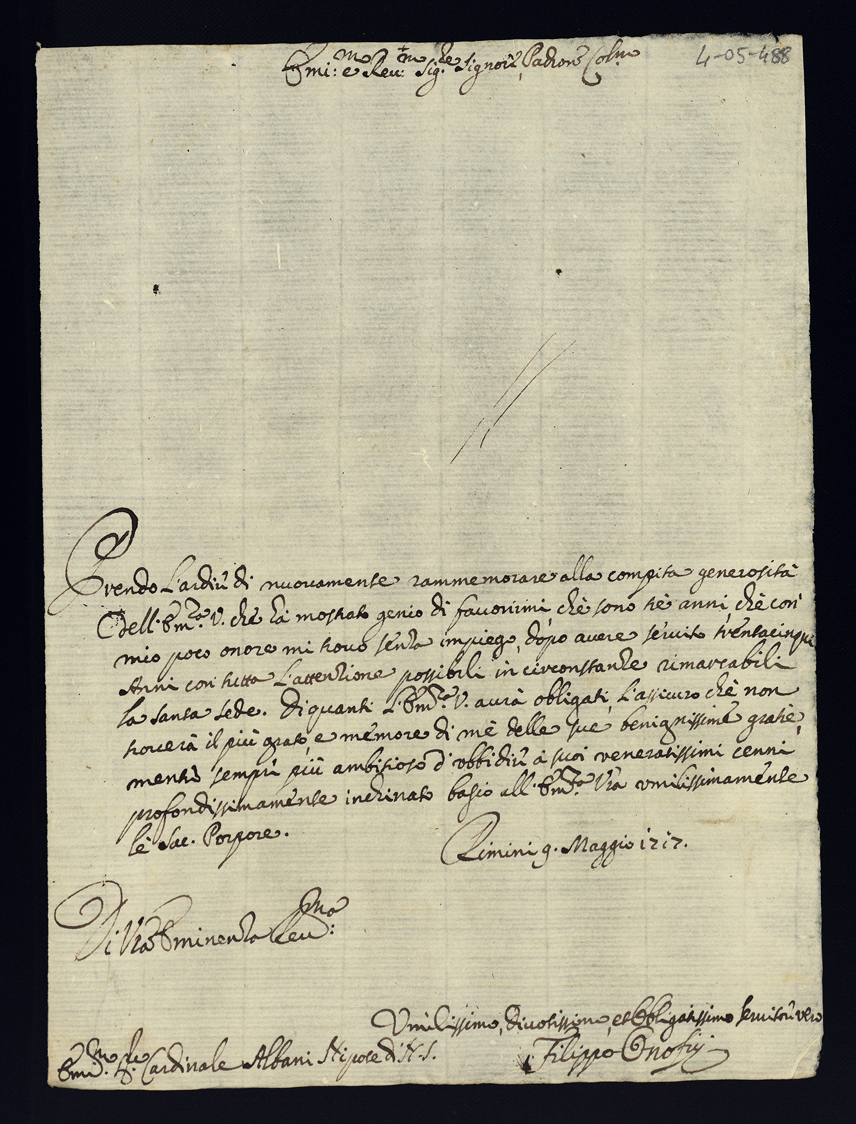 4-05-488
Emi:mo e Reu:mo Sig.re Signore, Padrone Col.mo
Prendo L'ardire di nuovamente rammemorare alla compita generosità
Dell'Em.za V. che hà mostrato genio di favorirmi, che sono tré anni, che con
mio poco onore mi trovo senza impiego, dopo avere servito trentacinque
Anni con tutta L'attenzione possibili in circonstanze rimarcabili
la Santa Sede. Di quanti L'Em.za V. aurà obligati, L'assicuro che non
troverà il più grato, e memore di mé delle sue benignissime gratie,
mentre sempre più ambitioso d'vbbidire à suoi veneratissimi cenni
profondissimamente inchinato bagio all'Em.za Vra vmilissimamente
le Sac. Porpore.
Rimini 9. Maggio 1717.
Di Vra Eminenza Reu:ma
Vmilissimo, Divotissimo, et Obligatissimo Servitore vero
Emi.mo Sr. Cardinale Albani Nipote di N. S.
Filippo Onofrij